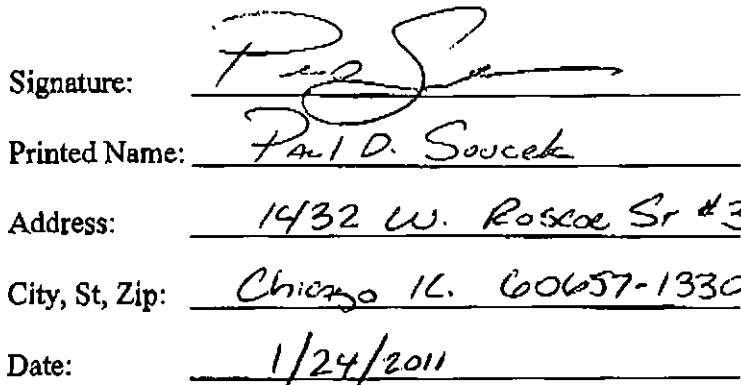 Signature:
Printed Name: Paul D. Soucek
Address: 1432 W. Roscoe St #3
City, St, Zip: Chicago IL. 60657-1330
Date: 1/24/2011